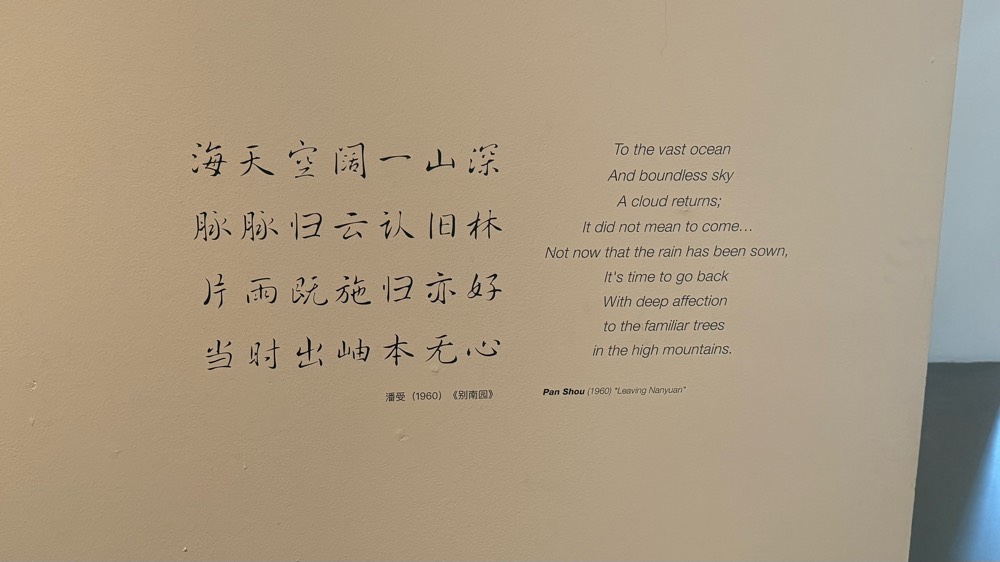 海天空阔一山深
脉脉归云认旧林
片雨既施归亦好
当时出岫本无心
潘受（1960）《别南园》
To the vast ocean
And boundless sky
A cloud returns;
It did not mean to come…
Not now that the rain has been sown,
It's time to go back
With deep affection
to the familiar trees
in the high mountains.
Pan Shou (1960) "Leaving Nanyuan"